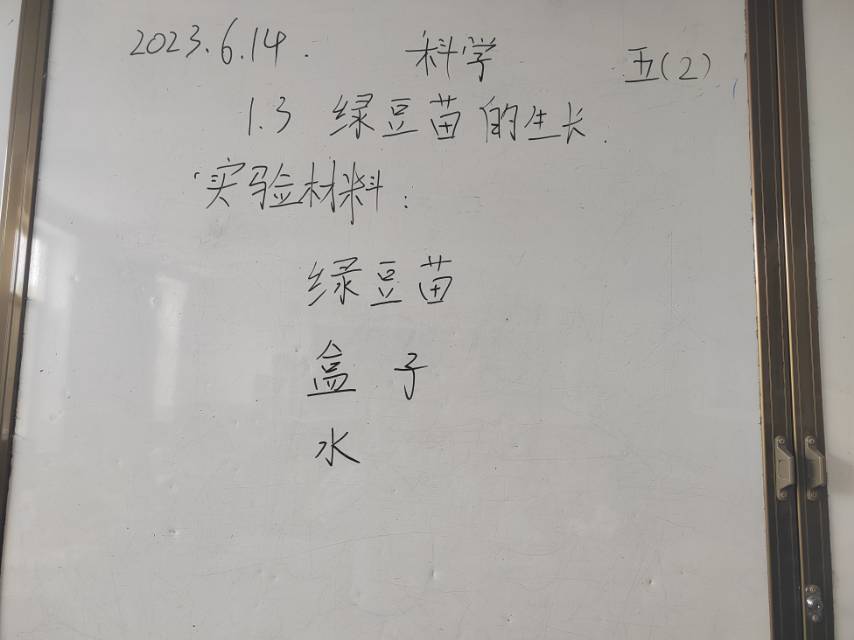 2023.6.14. 科学 五(2)
1.3 绿豆苗的生长.
实验材料:
绿豆苗
盒子
水